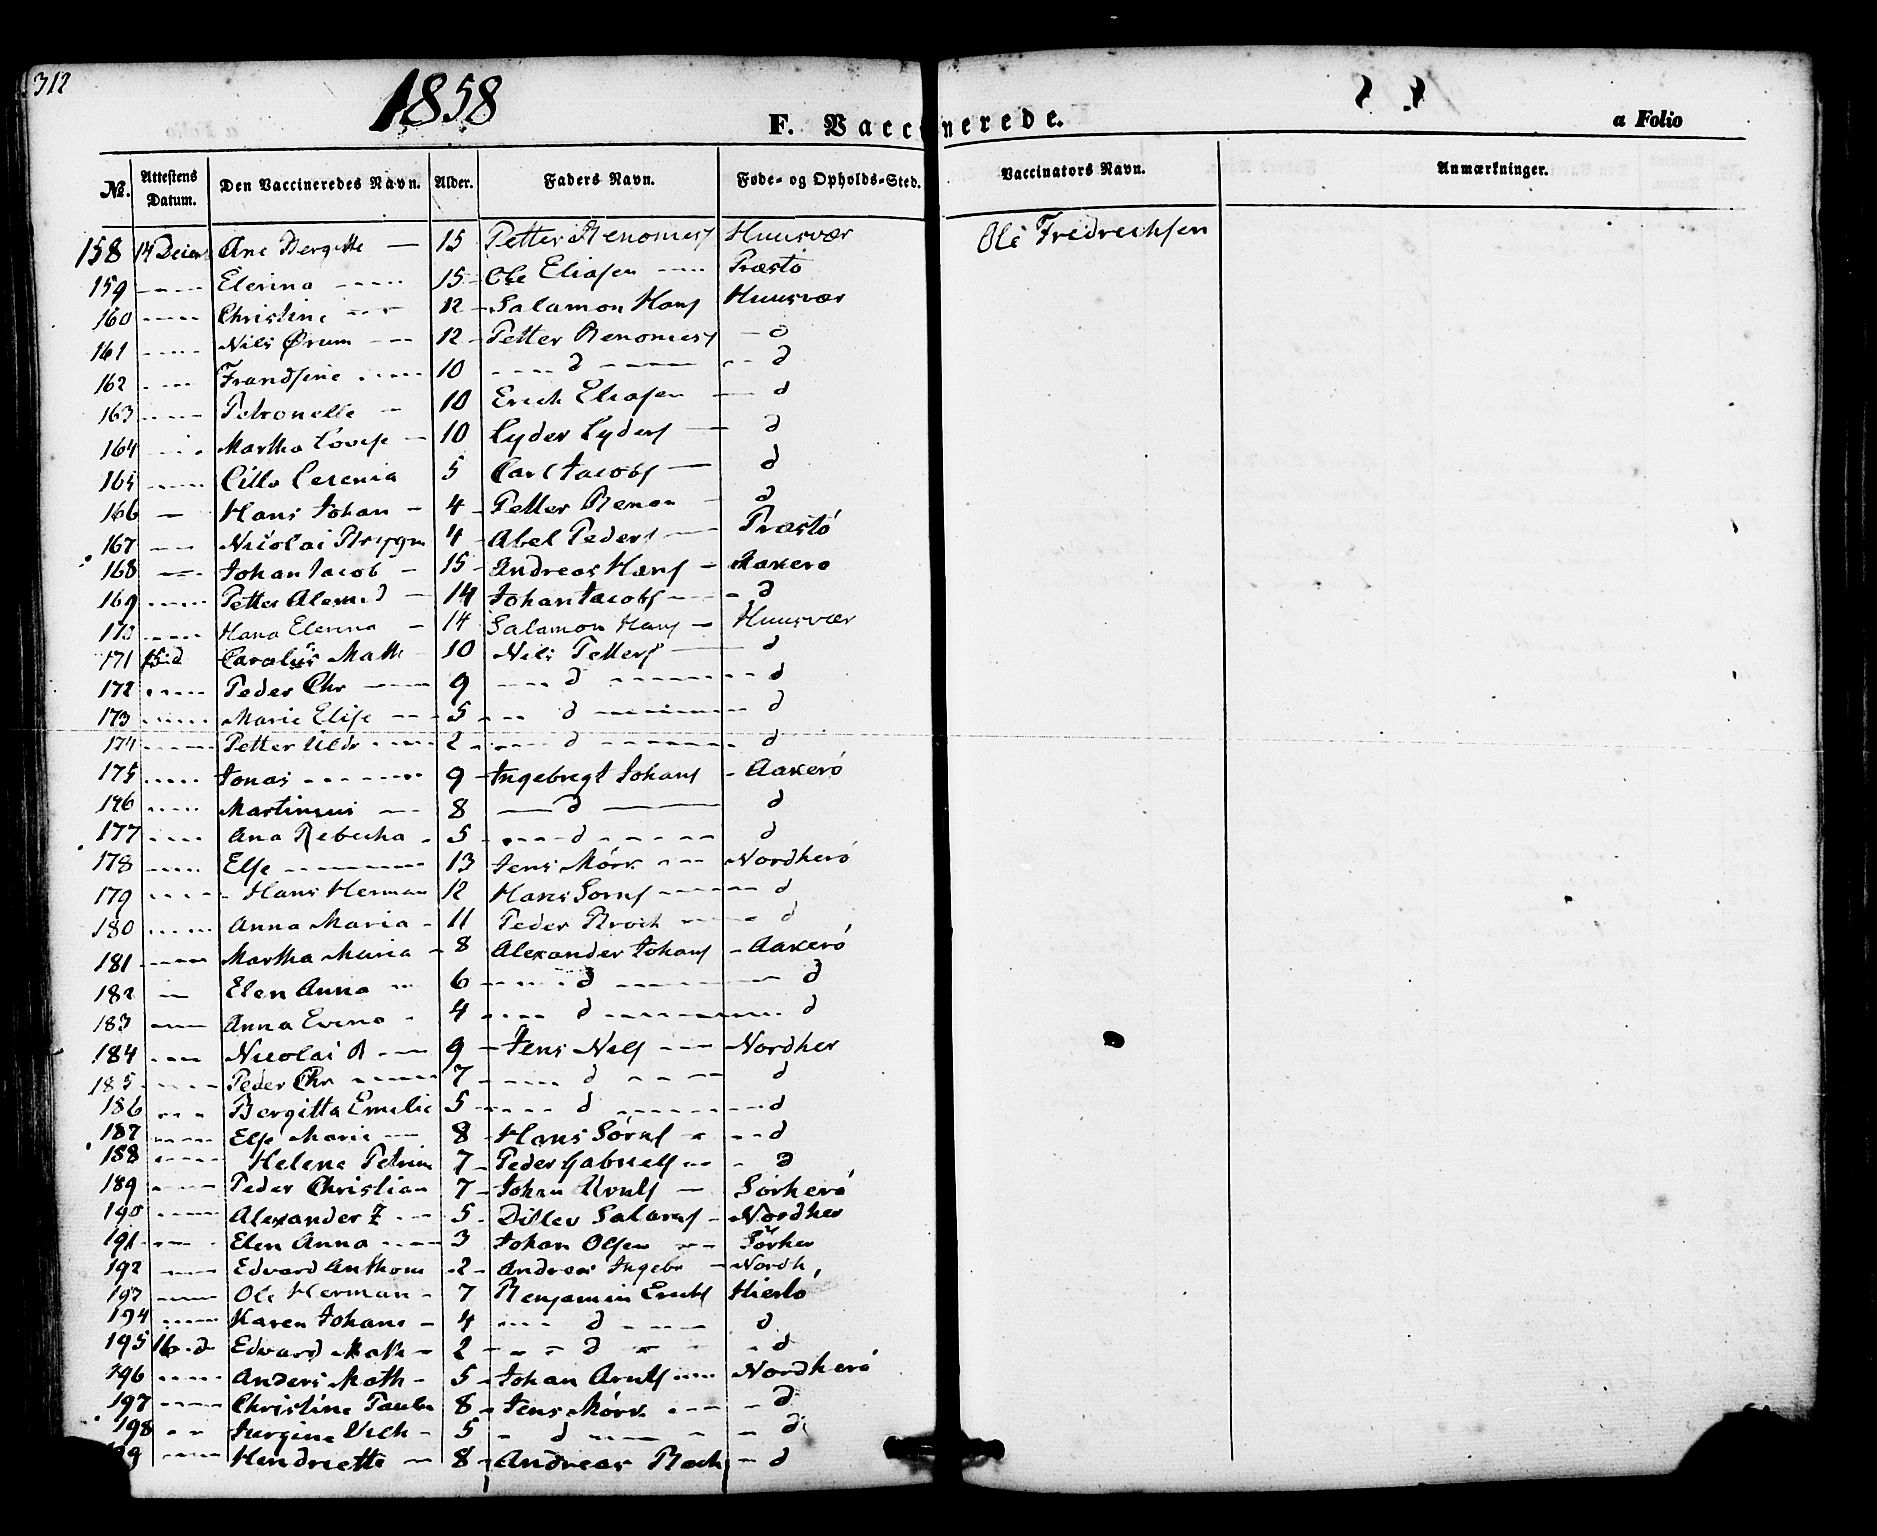 312
1858
F. Vaccinerede.
a Folio
№. Attestens Datum. Den Vaccineredes Navn. Alder. Faders Navn. Føde- og Opholds-Sted. Vaccinators Navn. Anmærkninger.
158 14 Ane Bergitte — 15 Petter Huusvær Ole Fredrechsen
159 ---- Elerina ---- 15 Ole Eliasen ---- Præstö
160 ---- Christine --- 12 Salamon Hans Huusvær
161 ---- Nils Ørum --- 12 Petter — d
162 ---- Frandsine ---- 10 ---- d ---- -- d
163 ---- Petronelle - 10 Erich Eliasen — d
164 --- Martha Lovise - 10 Lyder Lyders — d
165 ---- Cerenia 5 Carl Jacobs — d
166 — Hans Johan - 4 Petter Benon - d
167 --- Nicolai 4 Abel Peders — Præstö
168 --- Johan Jacob - 15 Andreas Hans - Aakerö
169 ---- Petter - 14 Johan Jacobs ---- d
170 ---- Hana Elerina - 14 Salamon Hans - Huusvær
171 15 d Math 10 Nils Petters — d
172 ---- Peder Chr — 9 ---- d ---- -- d
173 ---- Marie Elise --- 5 --- d ---- -- d
174 ---- Petter ---- 2 ---- d ---- - d
175 ---- Jonas ---- 9 Ingebregt Johans - Aakerö
176 ---- Martinius --- 8 — d — d
177 ---- Ana Rebecka - 5 ---- d ---- d
178 ---- Else ---- 13 Jens Mörk --- Nordherö
179 ---- Hans Herman 12 Hans Sörns ---- d
180 ---- Anna Maria - 11 Peder Broch --- d
181 ---- Martha Maria - 8 Alexander Johans - Aakerö
182 — Elen Anna -- 6 ---- d ---- -- d
183 --- Anna - 4 ---- d ---- --- d
184 --- Nicolai B --- 9 Jens Nils --- Nordher
185 ---- Peder Chr ---- 7 ---- d ---- d
186 --- Bergitta Emelie 5 ---- d ---- --- d
187 ---- Else Marie --- 8 Hans Sörns - -- d
188 ---- Helene 7 Peder Gabriels -- - d
189 ---- Peder Christian 7 Johan — Sörherö
190 ---- Alexander Z --- 5 Nordher
191 --- Elen Anna ---- 3 Johan Olsen -- Sörher
192 --- Edvard Anthoni 2 Andreas Ingebr - Nordh
193 --- Ole Herman - 7 Benjamin Erichs
194 ---- Karen Johane - 4 --- d ---- d
195 16 d Edvard Math - 2 --- d -- -- d
196 ---- Anders Math - 5 Johan Arnts --- Nordherö
197 ---- Christine 8 Jens Mörk --- - d
198 -- Jurgine Vilh - 5 - d ---- - d
9 ---- Hendriette — 8 Andreas - d